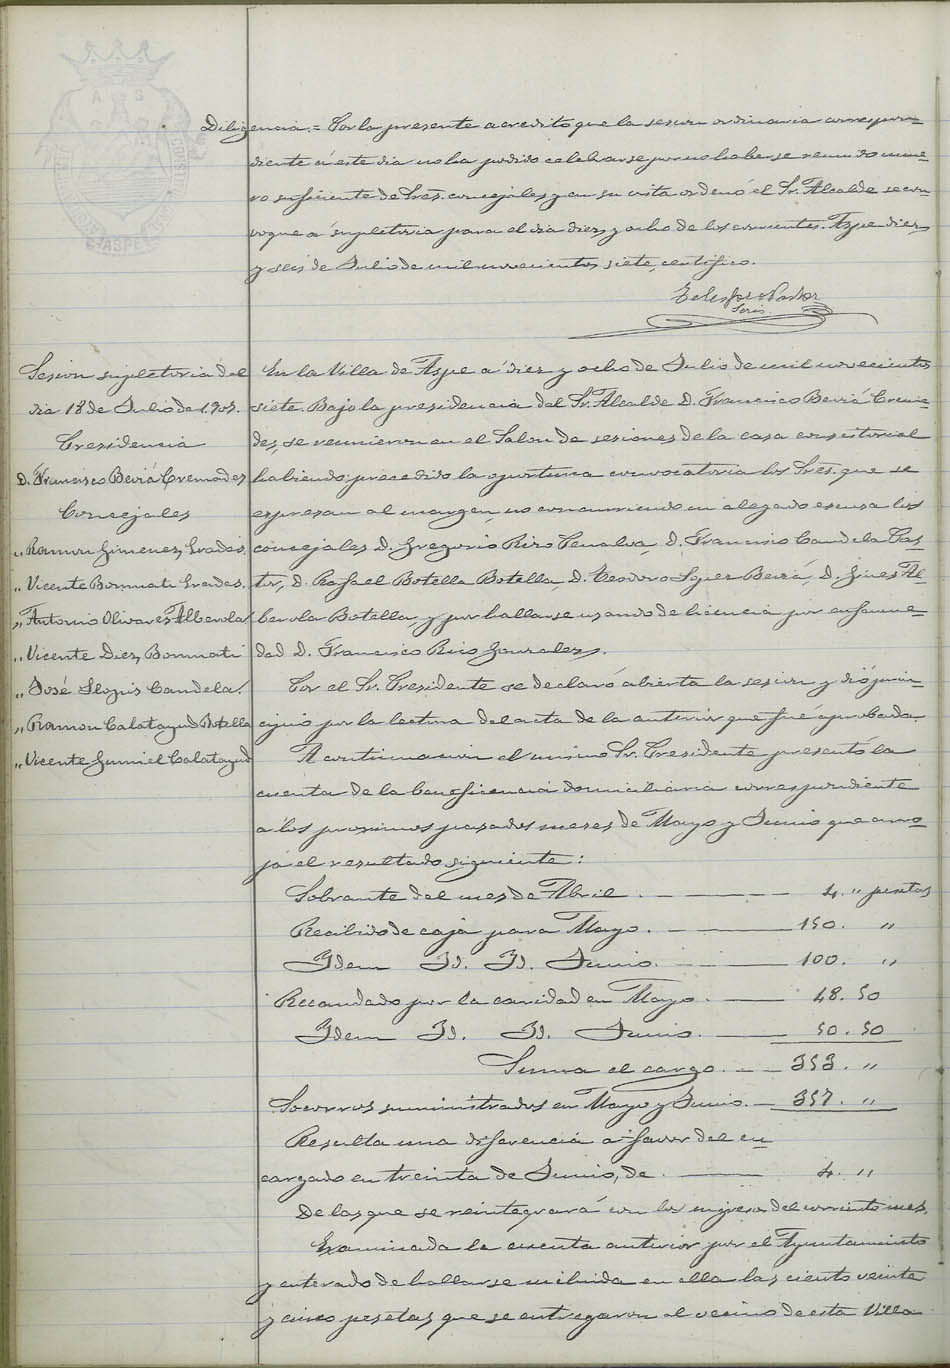 Diligencia.= Por la presente acredito que la sesion ordinaria correspon-
diente á este dia no ha podido celebrarse por no haberse reunido nume-
ro suficiente de Sres. concejales, y en su vista ordenó el Sr. Alcalde se con-
voque á supletoria para el dia diez y ocho de los corrientes. Aspe diez
y seis de Julio de mil novecientos siete, certifico.
Telesforo Pastor
Srio.
Sesion supletoria del
dia 18 de Julio de 1907.
Presidencia
D. Francisco Beviá Cremades
Concejales
„ Ramon Gimenez Gradas.
„ Vicente Bonmati Gradas.
„ Antonio Olivares Alberola
„ Vicente Diez Bonmati
„ José Llopis Candela.
„ Ramon Calatayud Botella
„ Vicente Gumiel Calatayud
En la Villa de Aspe á diez y ocho de Julio de mil novecientos
siete. Bajo la presidencia del Sr. Alcalde D. Francisco Beviá Crema-
des, se reunieron en el Salon de sesiones de la casa consistorial
habiendo precedido la oportuna convocatoria los Sres. que se
expresan al margen, no concurriendo ni alegado escusa los
concejales D. Gregorio Rizo Penalva, D. Francisco Candela Pas-
tor, D. Rafael Botella Botella, D. Teodoro Lopez Beviá, D. Gines Al-
berola Botella, y por hallarse usando de licencia por enferme-
dad D. Francisco Rico Gonzalez.
Por el Sr. Presidente se declaró abierta la sesion y dió prin-
cipio por la lectura del acta de la anterior que fué aprobada.
A continuacion el mismo Sr. Presidente presentó la
cuenta de la beneficencia domiciliaria correspondiente
a los proximos pasados meses de Mayo y Junio que arro-
ja el resultado siguiente:
Sobrante del mes de Abril . — — — — 4. „ pesetas
Recibido de caja para Mayo. — — 150. „
Idem Id. Id. Junio. — — 100. „
Recaudado por la caridad en Mayo. — 48. 50
Idem Id. Id. Junio. — 50. 50
Suma el cargo. — — 353. „
Socorros suministrados en Mayo y Junio. — 357. „
Resulta una diferencia a favor del en-
cargado en treinta de Junio, de . — 4. „
De las que se reintegrará con los ingresos del corriente mes.
Examinada la cuenta anterior por el Ayuntamiento
y enterado de hallarse incluida en ella las ciento veinte
y cinco pesetas que se entregaron al vecino de esta Villa